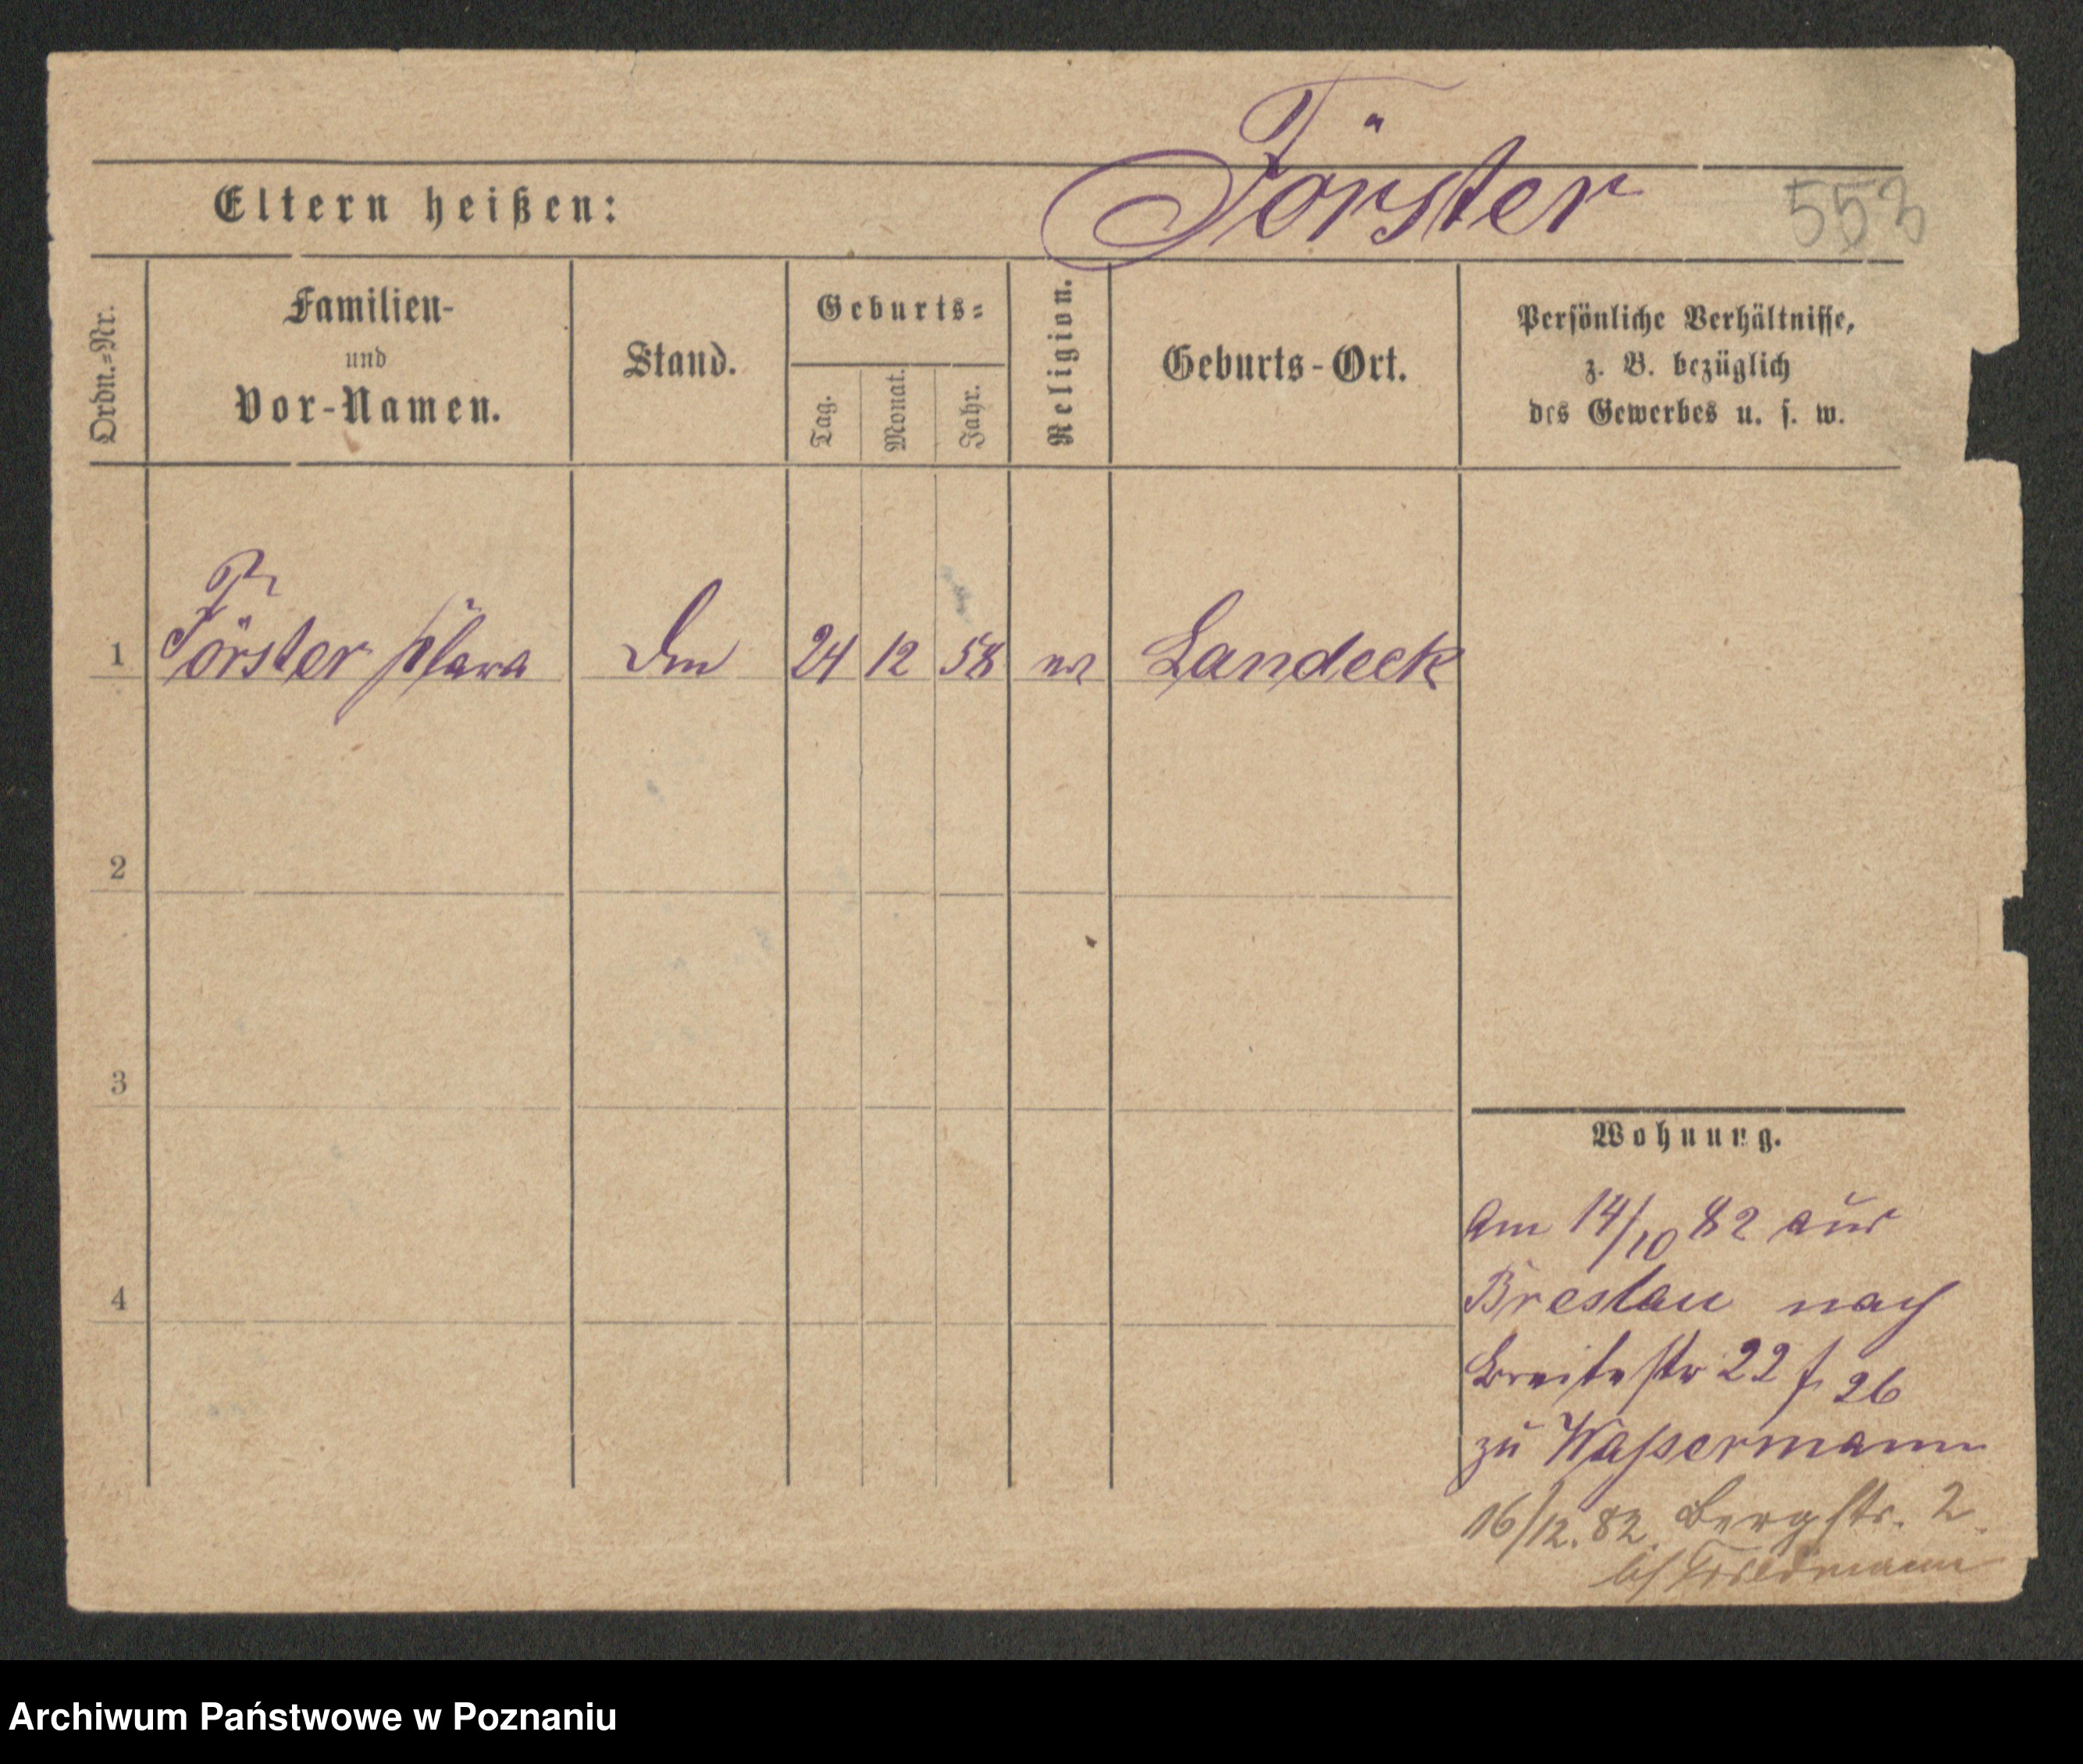 Förster
Eltern heißen:
553
Ordn.=Nr.
Familien-
und
Vor-Namen.
Stand.
Geburts=
Tag.
Monat.
Jahr.
Religion.
Geburts-Ort.
Persönliche Verhältnisse,
z. B. bezüglich
des Gewerbes u. s. w.
1 Förster Klara 24 12 58 Landeck
2
3
4
Wohnung.
Am 14/10 82 aus
Breslau nach
Breitestr 22 f 26
zu Wassermann
16/12. 82. Bergstr. 2.
Friedmann
Archiwum Państwowe w Poznaniu